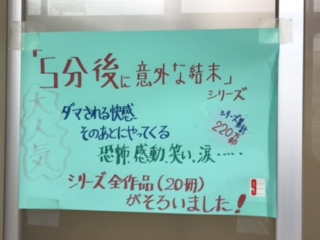 「5分後に意外な結末」
シリーズ
大人気
ダマされる快感、
そのあとにやってくる
恐怖、感動、笑い、涙……
シリーズ全作品(20冊)
がそろいました!